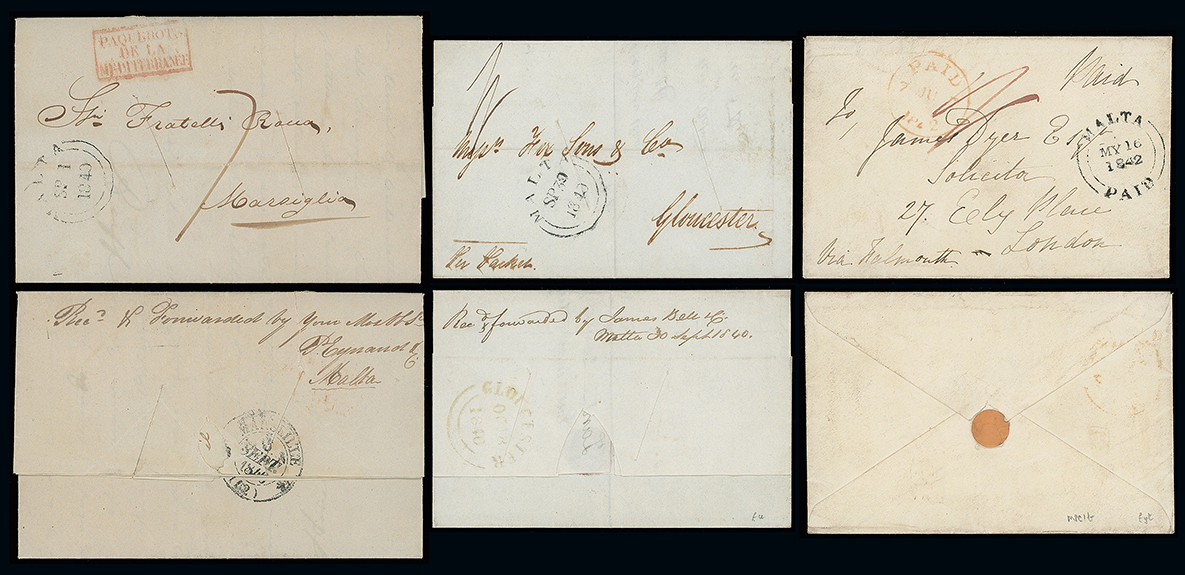 PAQUEBOTS
DE LA
MÉDITERRANÉE
Fratelli Rocca,
7
Marsiglia
MALTA
SP 1
1840
Messrs. Fox Sons & Co
MALTA
SP 30
1840
Gloucester
Per Packet
PAID
7 JU
1842
Paid
To,
James Dyer Esqr
Solicitor
27. Eely Place
London
Via Falmouth
MALTA
MY 16
1842
PAID
Recd & Forwarded by your Mo
Eynaud &
Malta
MARSEILLE
SEPT.
(12)
Recd & forwarded by James Bell & Co
Malta 30 Sept 1840.
GLOUCESTER
OC
1840